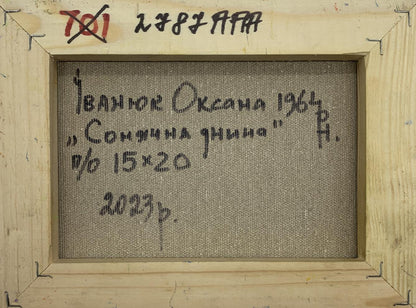 701 2787АРА
Іванюк Оксана 1964 р.н.
„Сонячна днина"
п/о 15×20
2023р.